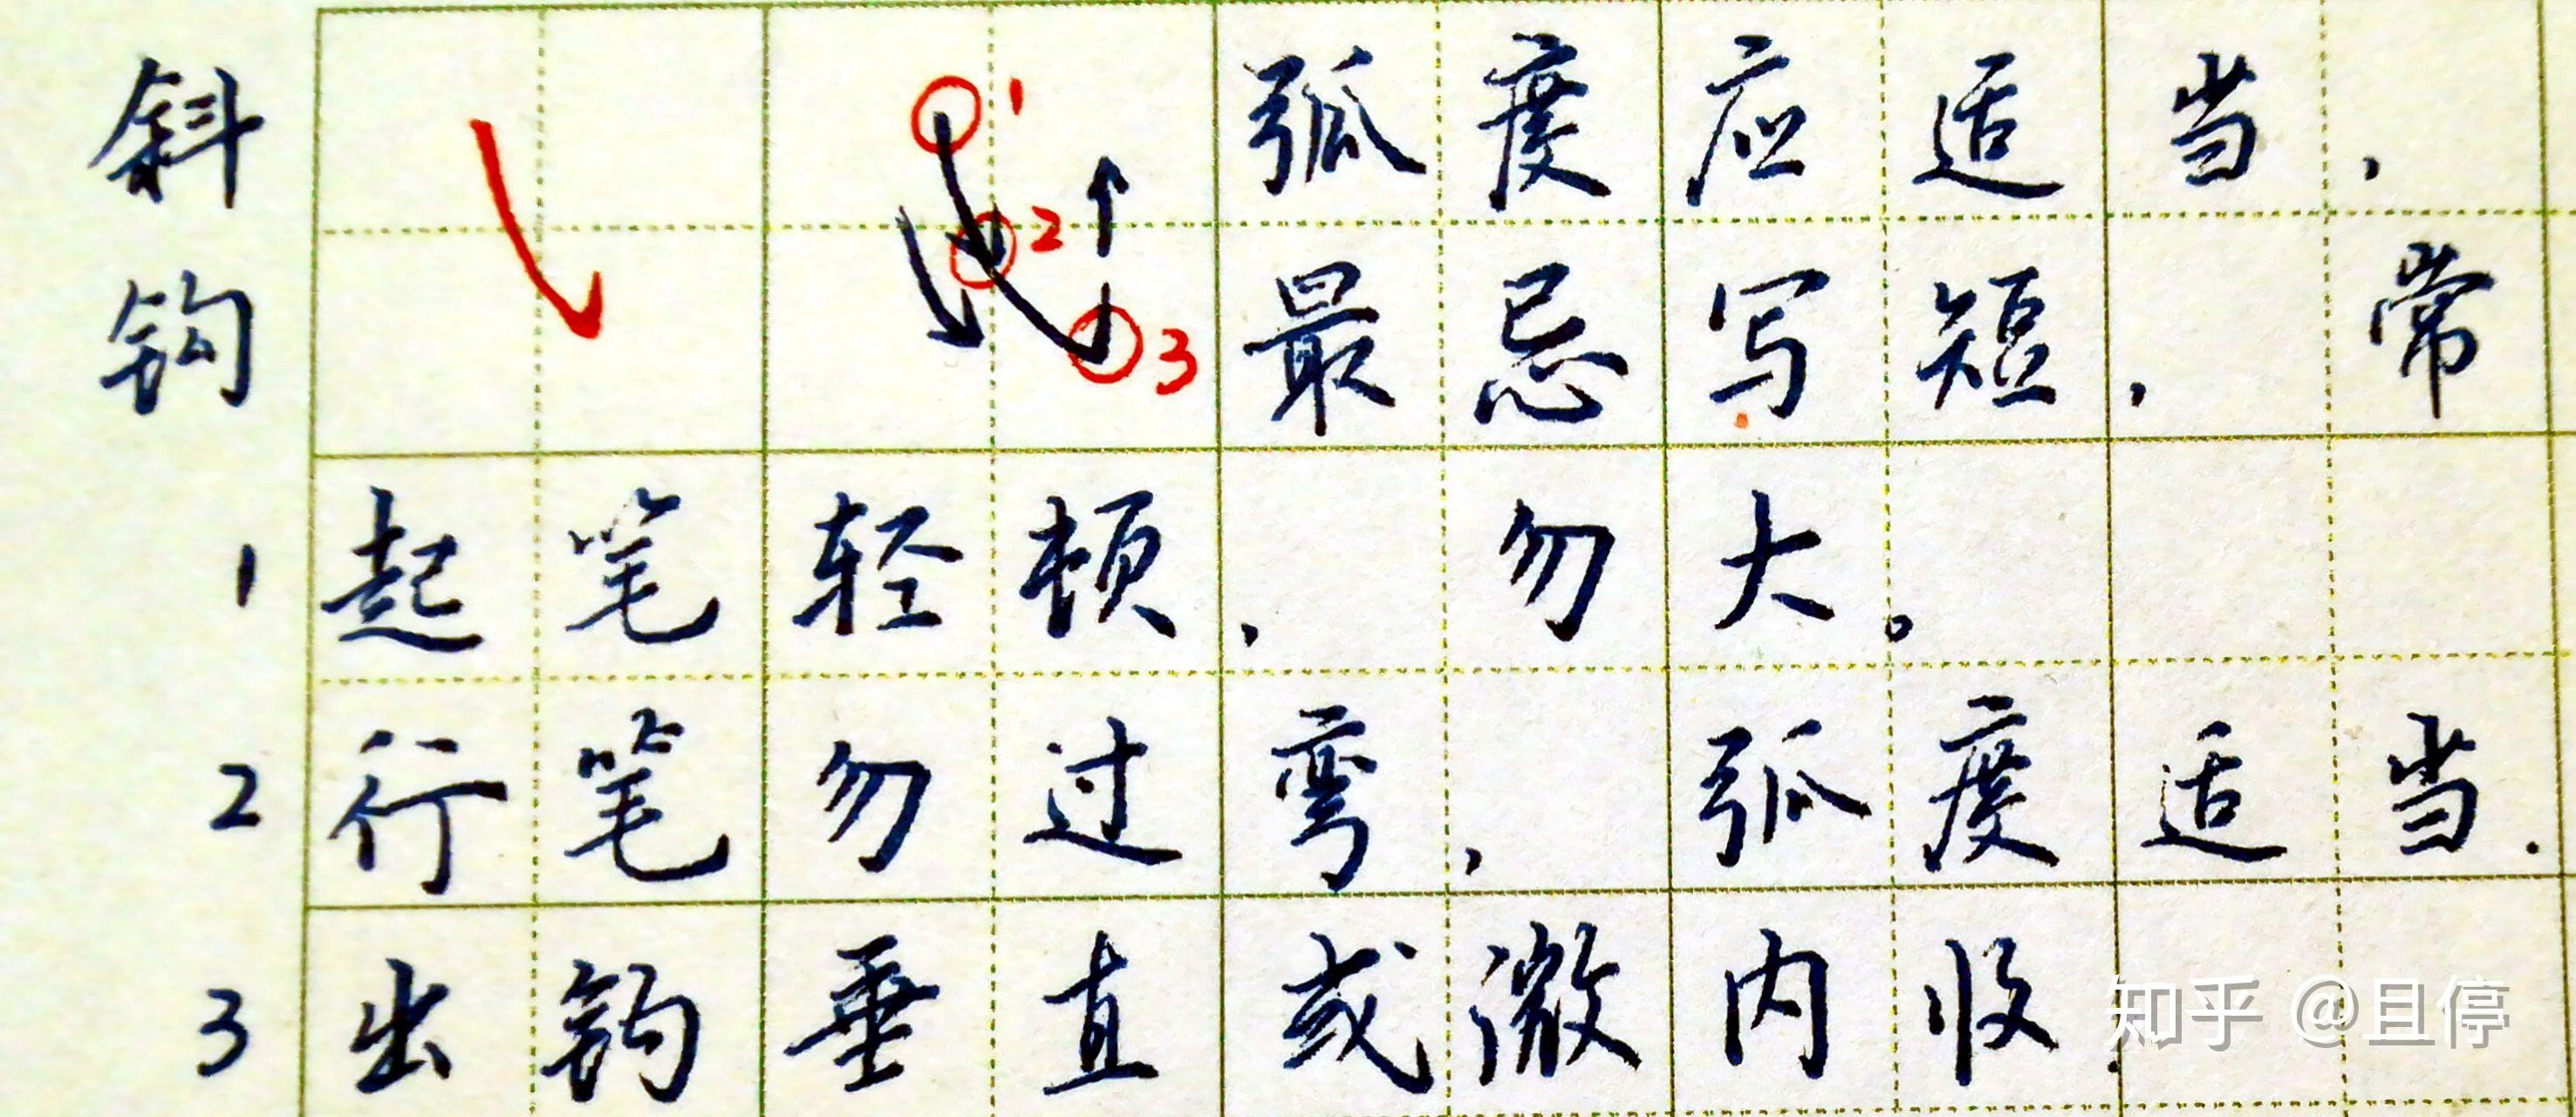 斜钩
1
2
3
弧度应适当，
最忌写短，常
1 起笔轻顿，勿大。
2 行笔勿过弯，弧度适当.
3 出钩垂直或微内收.
知乎 @且停